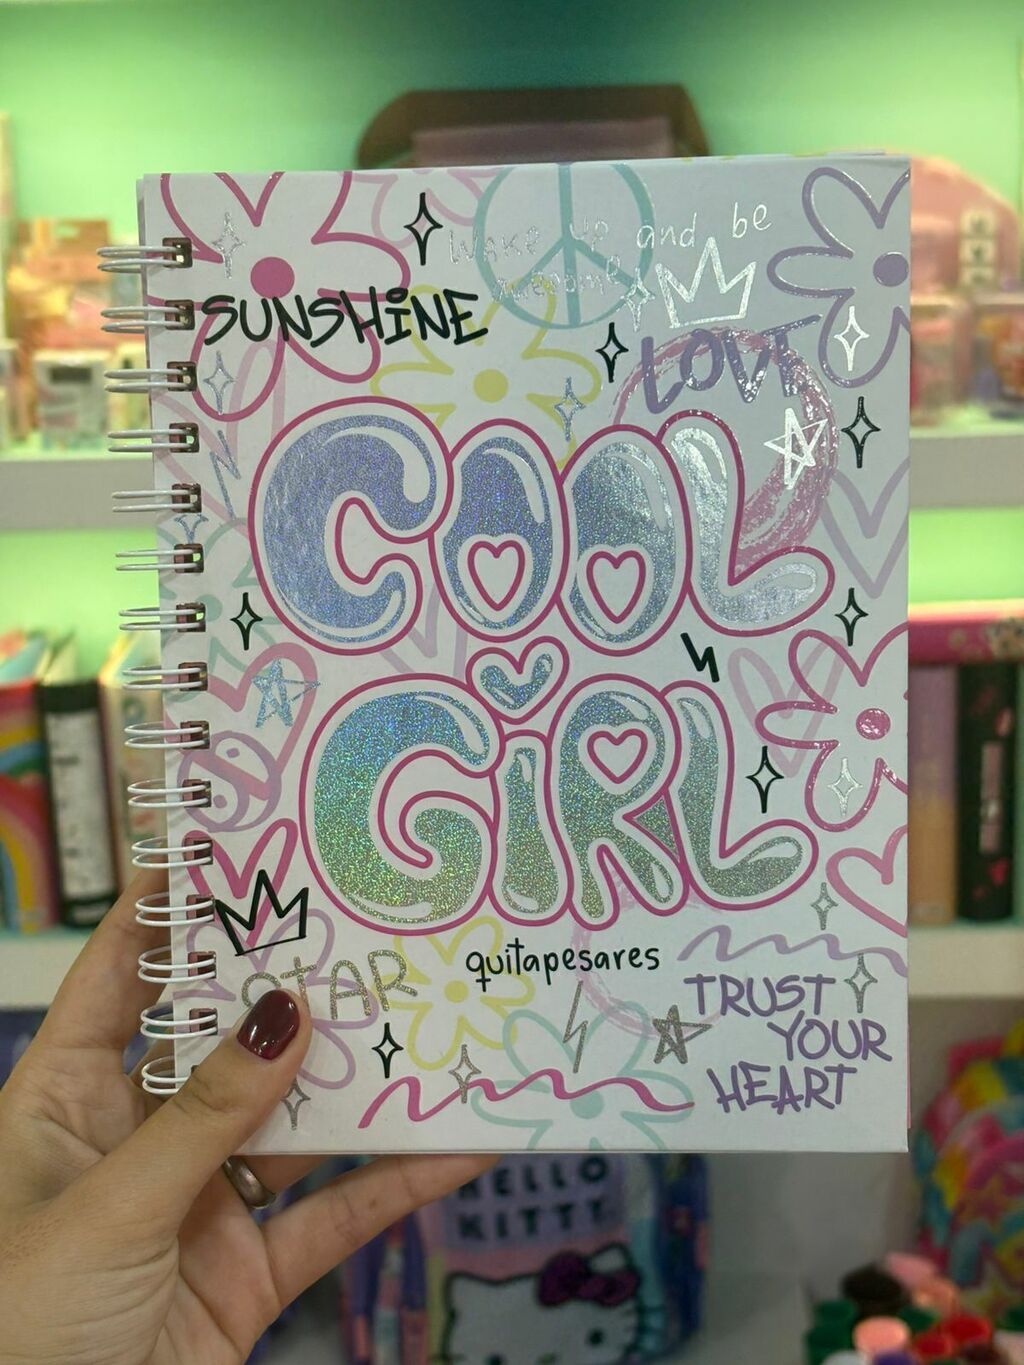 Wake up and be
awesome!
SUNSHiNE
LOVE
COOL
GiRL
quitapesares
STAR
TRUST
YOUR
HEART
HELLO
KITTY